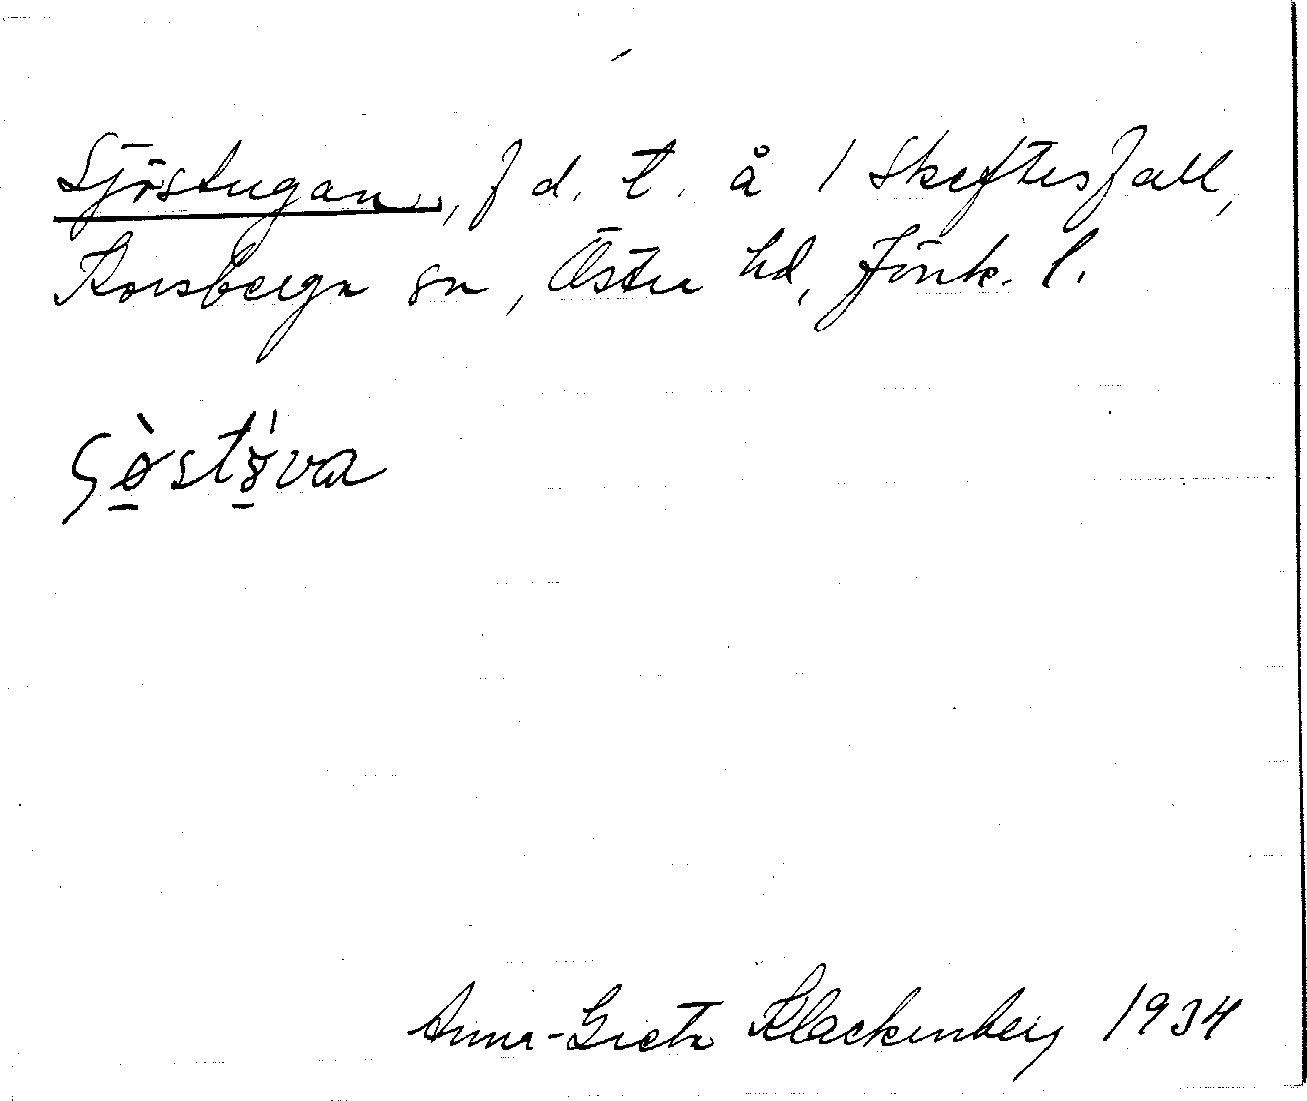 Sjöstugan, f d. t. å 1 Skeftesfall,
Korsberga sn, Östra hd, Jönk. l.
ʂø̠̀stǿ̠va
Anna-Greta Klackenberg 1934